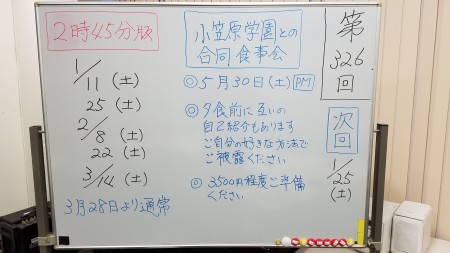 2時45分版
1/11(土)
25(土)
2/8(土)
22(土)
3/14(土)
3月28日より通常
小笠原学園との
合同食事会
◎5月30日(土)PM
◎夕食前に互いの
自己紹介もあります
ご自分の好きな方法で
ご披露ください
◎3500円程度ご準備
ください
第
326
回
次回
1/25
(土)